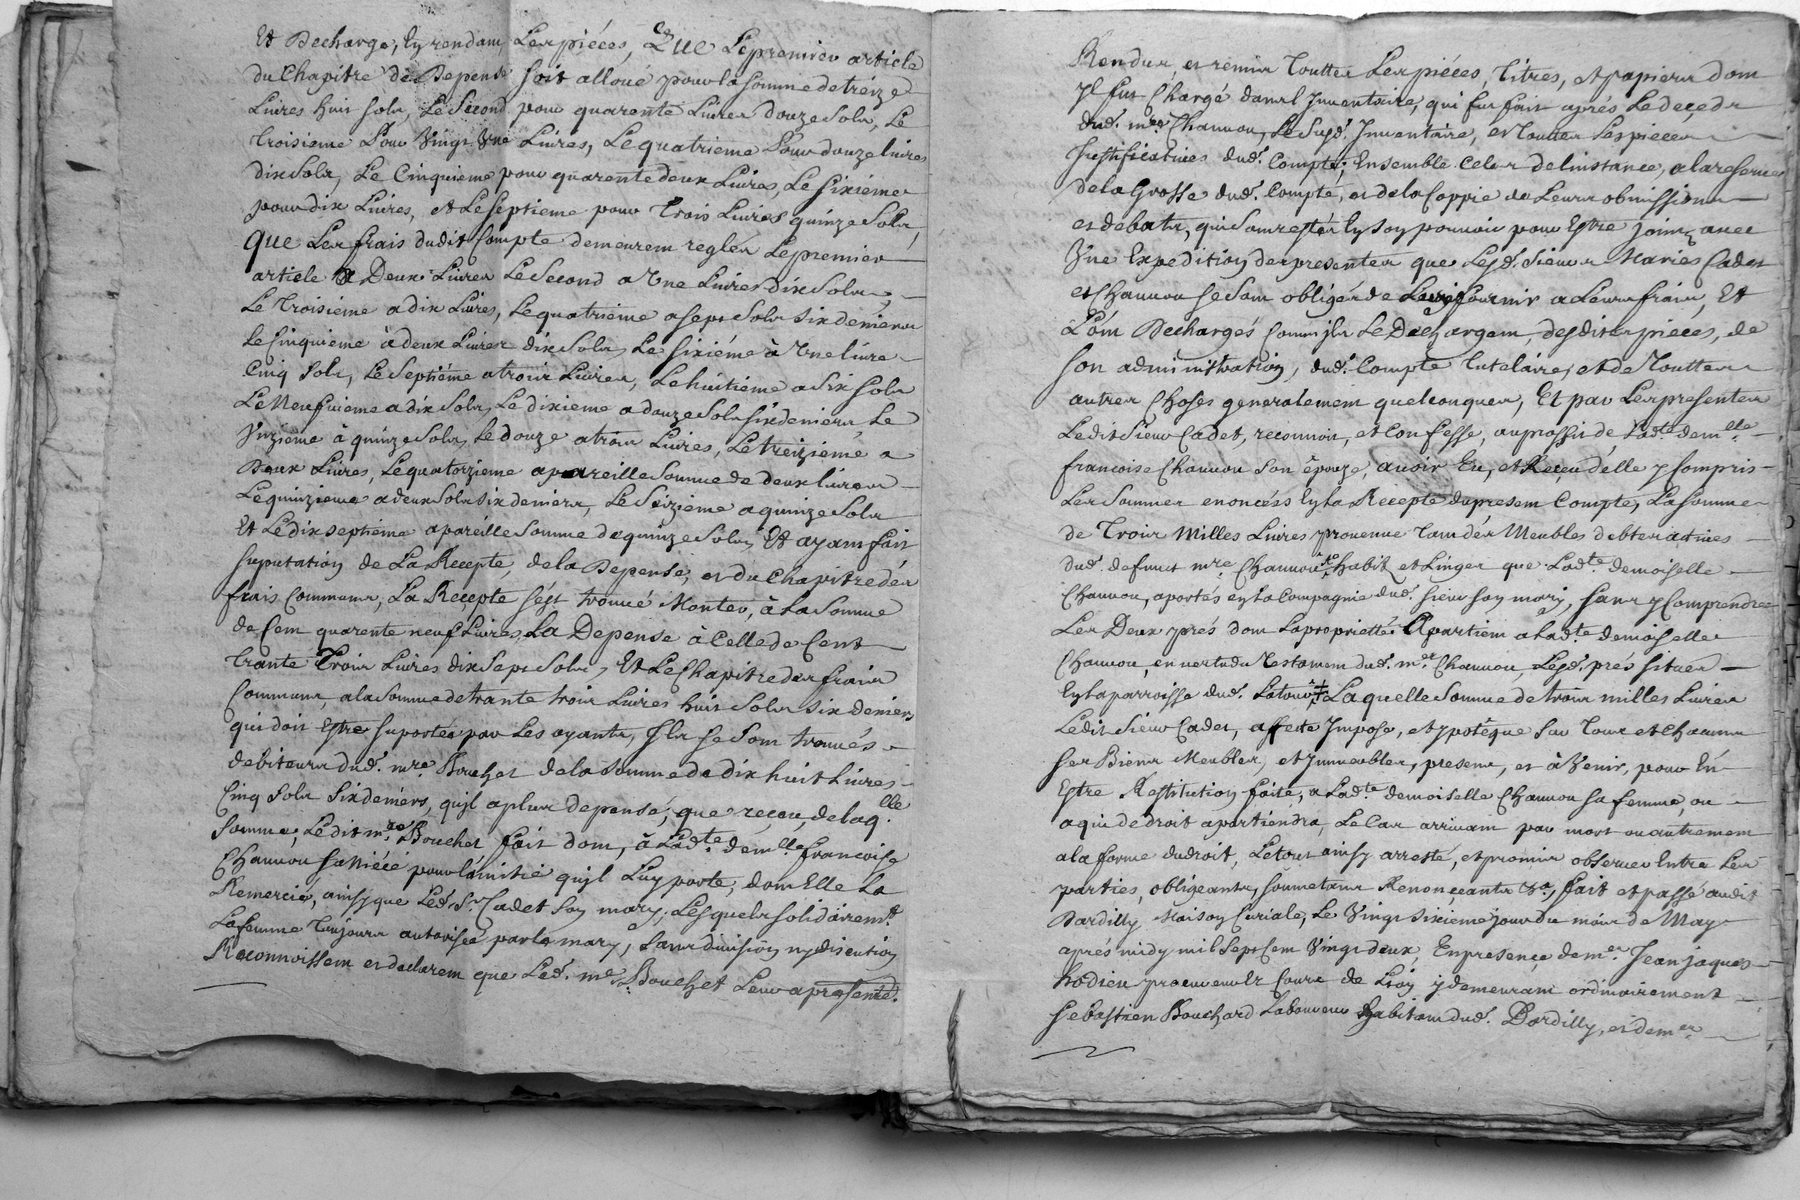 Et Decharge, En rendant Les piéces, Que Le premier article
du Chapitre de Depense soit alloué pour la somme de tréize
Livres huit sols, Le Second pour quarente Livres douze Sols, Le
Troisieme Pour Vingt Une Livres, Le quatrieme Pour douze livres
dix Sols, Le Cinquieme pour quarente deux Livres, Le sixiéme
pour dix Livres, et Le septieme pour Trois Livres quinze Sols,
que Les frais dudit Compte demeurent reglés Le premier
article a Deux Livres Le Second a Une Livres dix Sols,
Le Troisieme a dix Livres, Le quatrieme a sept Sols six deniers
Le Cinquieme à deux Livres dix Sols, Le sixiéme à Une livre
Cinq sols, Le Septiéme a trois Livres, Le huitieme a six sols
Le Neufvieme a dix Sols, Le dixieme a douze Sols six deniers, Le
Unzieme à quinze Sols, Le douze a trois Livres, Le treizieme a
Deux Livres, Le quatorzieme a pareille Somme de deux livres
Le quinzieme a deux Sols six deniers, Le Seizieme a quinze Sols
Et Le dix septieme a pareille Somme de quinze Sols, Et ayant fait
suputation de La Recepte, de la Depense, et du Chapitre des
frais Communs, La Recepte s'est trouvé Monter, à La Somme
de Cent quarente neuf Livres, La Depense à Celle de Cent
Trante Trois Livres dix Sept Sols, Et Le Chapitre des frais
Communs, a la Somme de trante trois Livres huit Sols six deniers
qui doit Estre suportée par Les ayants, Ils se sont trouvés
debiteurs dud. mre. Bouchet de la Somme de dix huit Livres
Cinq Sols six deniers, qu'il a plus depensé, que receu, de laq.lle
Somme, Ledit mre Bouchet fait dom, à Ladte. demlle francoise
Chanvou sa Niéce pour l'amitié qu'il Luy porte, dont Elle La
Remercié, ainsy que Led. Sr. Cadet son mary, Lesquels solidairemt.
La femme Toujours autorisée par le mary, sans division ny discution
Reconnoissent et declarent que Led. mre Bouchet Leur a presenté.
Rendus, et remis Toutes Les piéces, Titres, et papiers dont
Il fut Chargé dans L'Inventaire, qui fut fait aprés Le deçeds
dud. mre. Chanvou, Le Susd. Inventaire, et Toutes Les pieces
Justificatives dud. Compte, Ensemble Celes de linstance, a la reserve
de la Grosse dud. Compte, et de la Coppie de Leurs obmissions
et debats, qui sont restés En son pouvoir pour Estre joints avec
Une Expedition des presentes que Lesd. Sieurs Mariés Cadet
et Chanvou se sont obligés de Luy fournir a Leurs frais, Et
L'ont Dechargés Comm'ils Le Dechargent, desdites pieces, de
son administration, dud. Compte Tutelaire, et de Toutes
autres Choses generalement quelconques, Et par Les presentes
Ledit Sieur Cadet, reconnoit, et Confesse, au proffit de Ladte. demlle.
francoise Chanvou son épouze, avoir Eu, et Reçeu d'elle y Compris
Les Sommes enoncées En la Recepte du present Compte, La Somme
de Trois Milles Livres provenue Tant des Meubles debtes actives
dud. defunct mre. Chanvou habit et Linges que Ladte. demoiselle
Chanvou, a portés En la Compagnie dud. sieur son mary, sans y Comprendre
Les Deux prés dont La proprietté Apartient a Ladte demoiselle
Chanvou, en vertu du Testament dud. mre. Chanvou, Lesd. prés situés
En la parroisse dud. La Tour Laquelle Somme de trois milles Livres
Ledit Sieur Cadet, affecte Impose, et ypoteque Sur Tous et Chacuns
ses Biens Meubles, et Immeubles, presens, et à Venir, pour En
Estre Restitution faite, a Ladte. demoiselle Chanvou sa femme, ou
a qui de droit apartiendra, Le Cas arrivant par mort ou autrement
a la forme du droit, Le tout ainsy arresté, et promis observer Entre Les
parties, obligeants, soumetans Renonçeants &a, fait et passé audit
Dardilly Maison Curiale, Le Vingt sixieme jour du mois de May
aprés midy mil Sept Cent Vingt deux, En presence de mre. Jean jaques
hodieu procureur Ez Cours de Lion y demeurant ordinairement
Sebastien Bouchard Laboureur habitant dud. Dardilly, et de mre